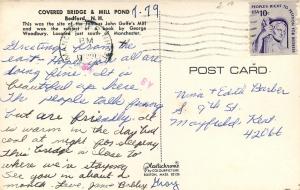 COVERED BRIDGE & MILL POND
Bedford, N. H.
This was the site of the famous John Goffe's Mill
and was the subject of a book by George
Woodbury. Located just south of Manchester.
Greetings from the
east. Hope you all are
doing fine. It is
beautiful up here
The people talk funny
but are friendly. It
is warm in the day but
cool at night for sleeping
This bridge is close to
where we're staying
See you in about a
month. Love, Bobby
POST CARD
Nina & Edith Barber
S. 9th St.
Mayfield, Kent
42066
Plastichrome
BY COLOURPICTURE
BOSTON, MASS. 02130
PEOPLE'S RIGHT TO
US 10c
PM